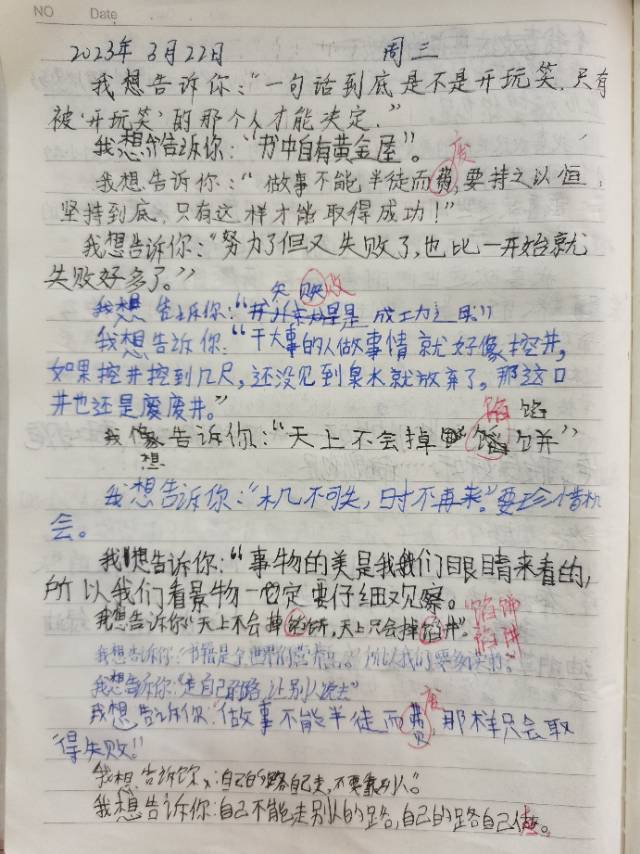 NO Date
2023年3月22日 周三
我想告诉你:“一句话到底是不是开玩笑,只有
被‘开玩笑’的那个人才能决定.”
我想告诉你:“书中自有黄金屋”。
废
我想告诉你:“做事不能半徒而费,要持之以恒,
坚持到底,只有这样才能取得成功!”
我想告诉你:“努力了但又失败了,也比一开始就
失败好多了。”
失败 败
我想告诉你:“是成功之母”
我想告诉你:“干大事的人做事情就好像挖井,
如果挖井挖到几尺,还没见到泉水就放弃了,那这口
井也还是废废井。”
馅 馅
我想告诉你:“天上不会掉馅饼”
想
我想告诉你:“机不可失,时不再来。”要珍惜机
会。
我想告诉你:“事物的美是我我们用眼睛来看的,
所以我们看景物一定要仔细观察。
馅饼
陷阱
我想告诉你“天上不会掉馅饼,天上只会掉陷井”。
我想告诉你:书籍是全世界的营养品。所以我们要多读书。
我想告诉你:“走自己的路,让别人说去”
废
我想告诉你:“做事不能半徒而费,那样只会取
得失败!”
我想告诉你:自己的路自己走,不要靠别人。”
我想告诉你:自己不能走别人的路,自己的路自己做。